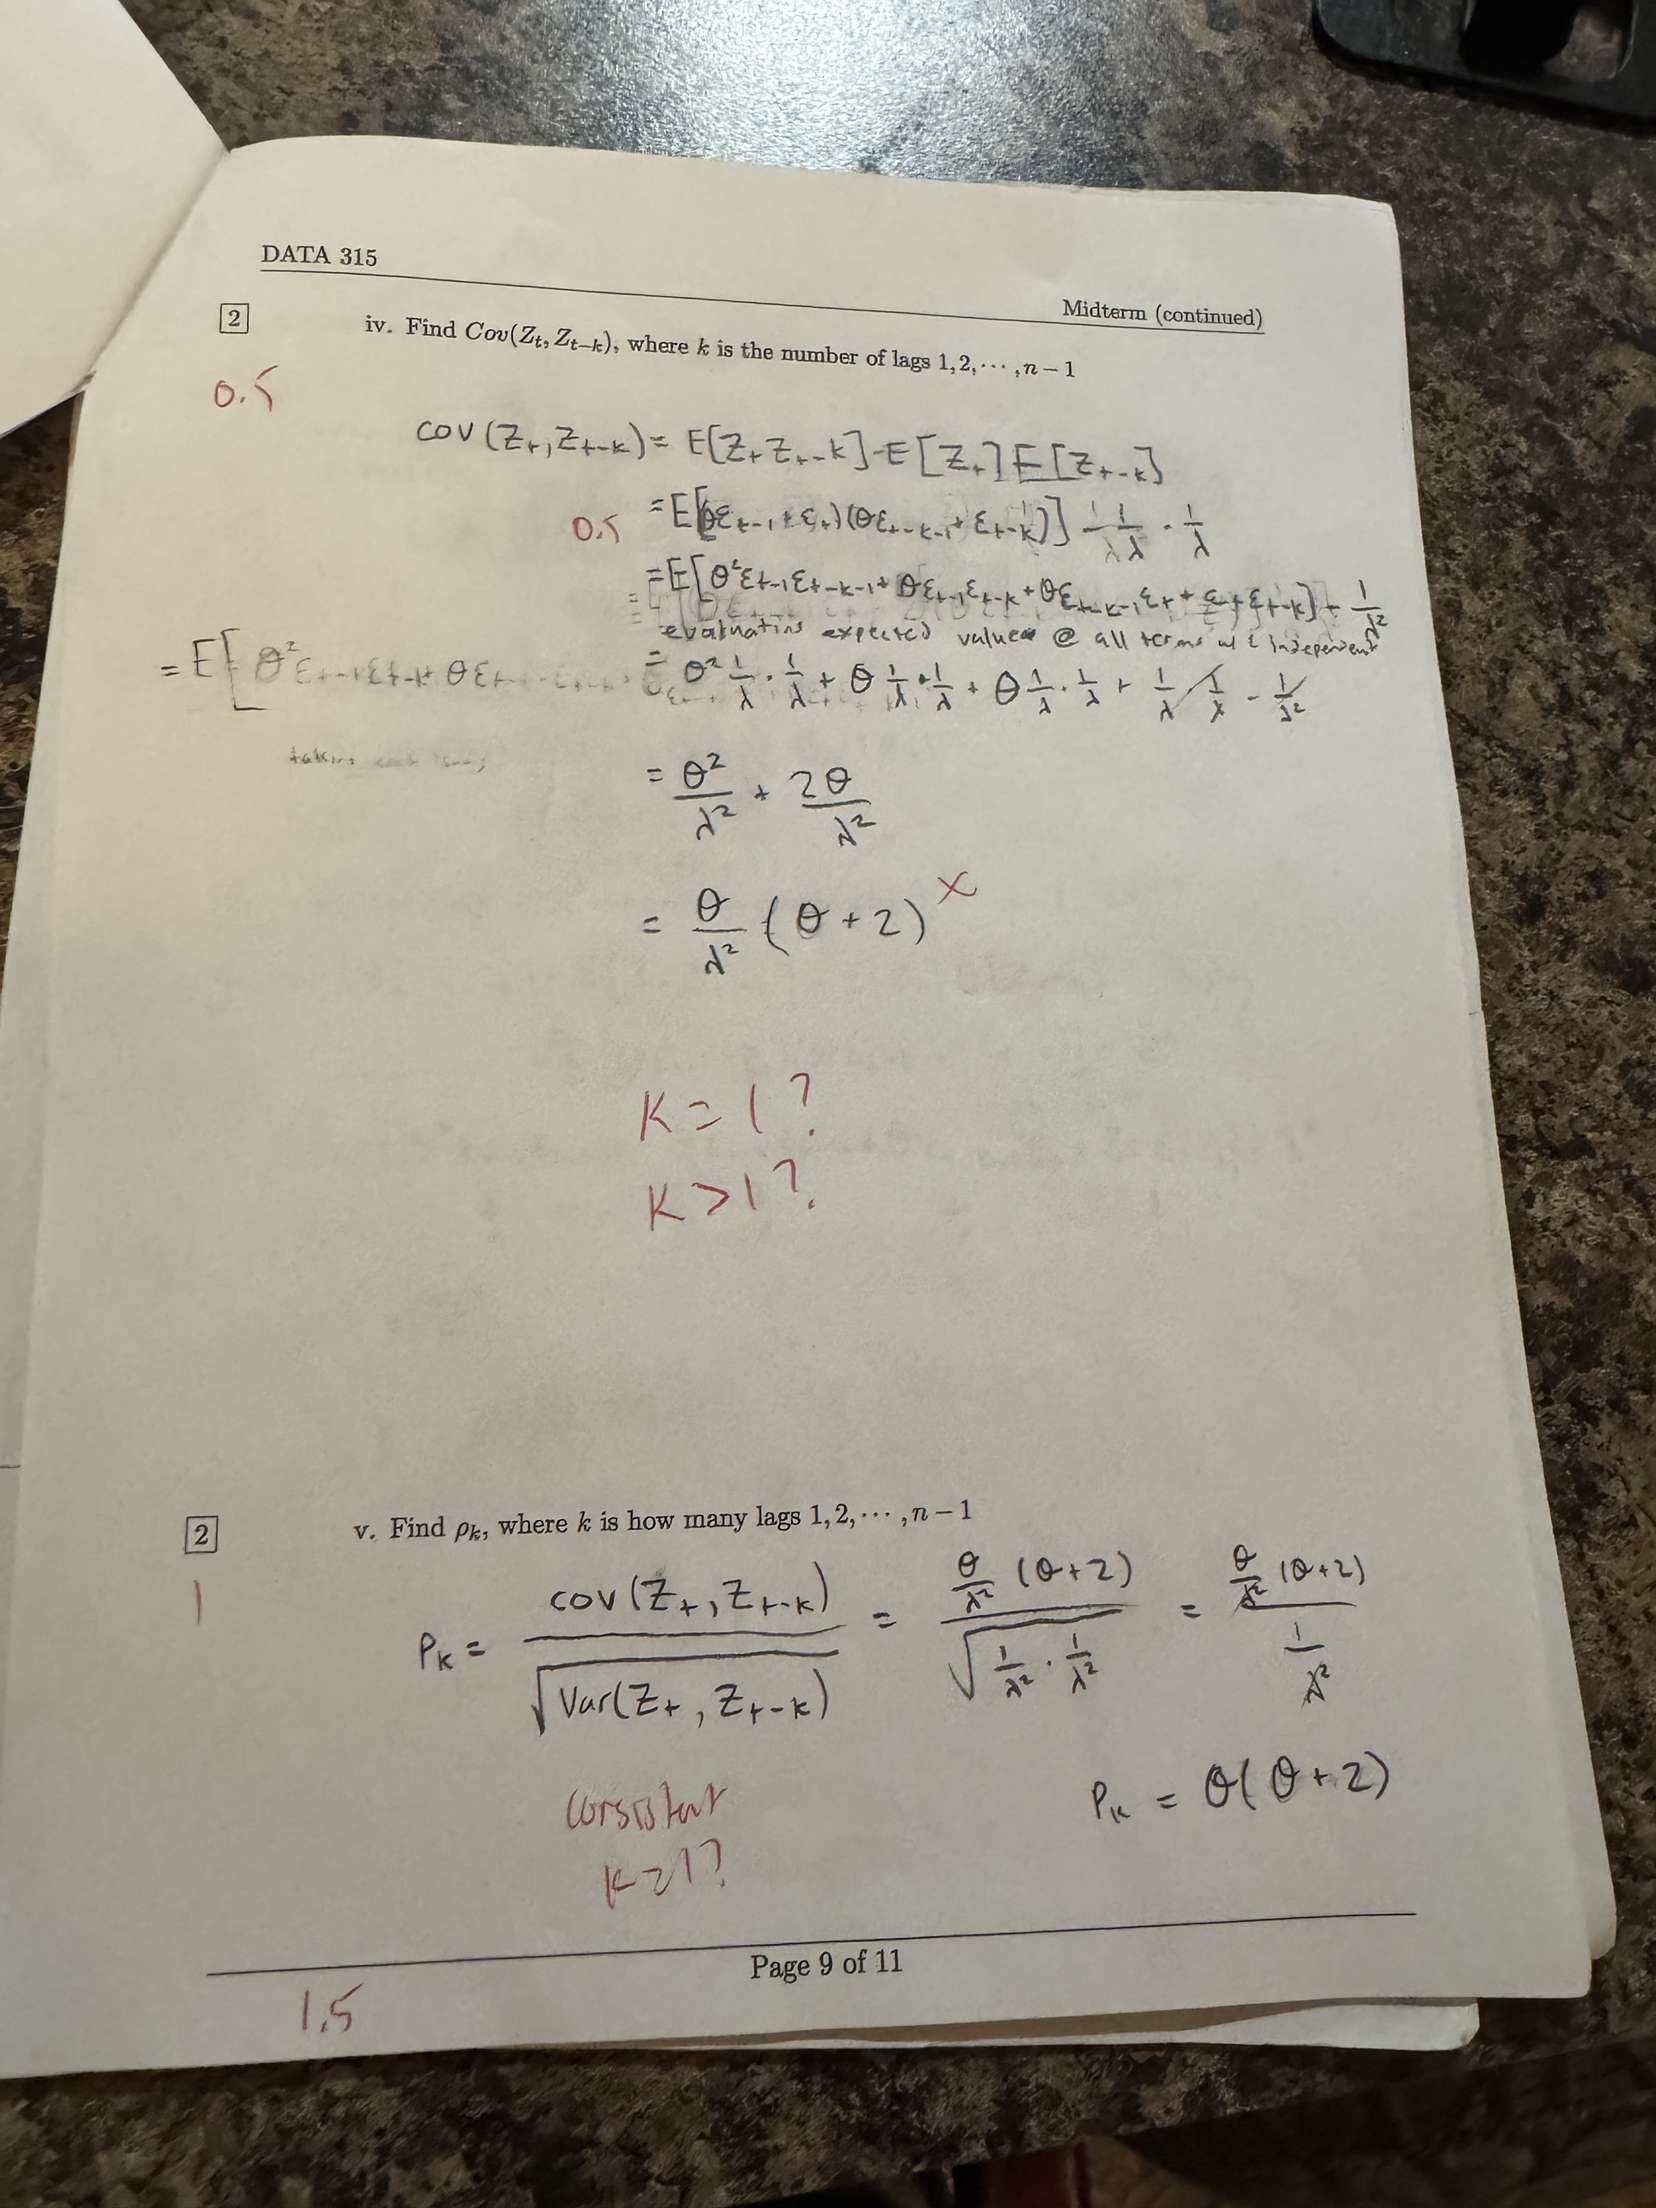 DATA 315
Midterm (continued)
2
iv. Find Cov(Z_t, Z_{t-k}), where k is the number of lags 1, 2, ⋯ , n − 1
0.5
cov(Z_t, Z_{t-k}) = E[Z_t Z_{t-k}] - E[Z_t] E[Z_{t-k}]
0.5
= E[(θε_{t-1} + ε_t)(θε_{t-k-1} + ε_{t-k})] - 1/λ · 1/λ
= E[θ²ε_{t-1}ε_{t-k-1} + θε_{t-1}ε_{t-k} + θε_{t-k-1}ε_t + ε_tε_{t-k}] - 1/λ²
evaluating expected value @ all terms w/ ε independent
= E[θ²ε_{t-1}ε_{t-k} + θε_{t-1}
= θ² 1/λ · 1/λ + θ 1/λ · 1/λ + θ 1/λ · 1/λ + 1/λ · 1/λ - 1/λ²
taking
= θ²/λ² + 2θ/λ²
= θ/λ² (θ + 2) ×
K = 1 ?
K > 1 ?
2
v. Find ρ_k, where k is how many lags 1, 2, ⋯ , n − 1
1
ρ_k = cov(Z_t, Z_{t-k}) / √Var(Z_t, Z_{t-k}) = θ/λ² (θ+2) / √(1/λ² · 1/λ²) = θ/λ² (θ+2) / 1/λ²
ρ_k = θ(θ + 2)
consistent
K = 1 ?
Page 9 of 11
1.5